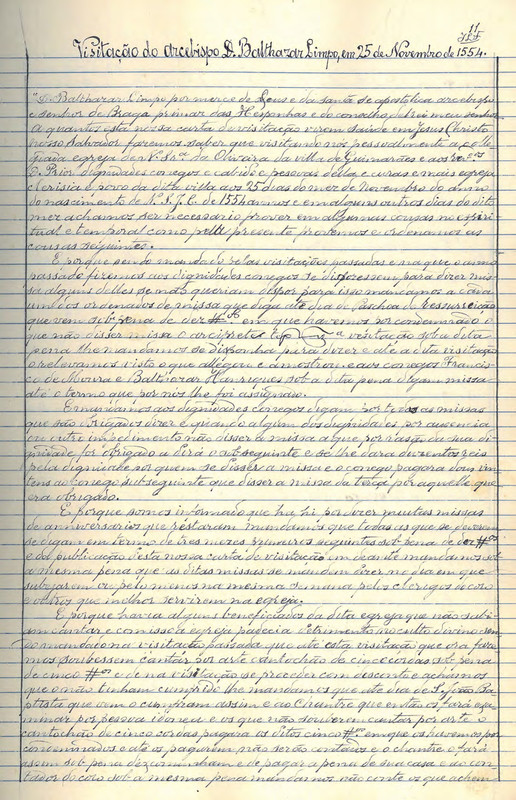 11
Visitação do arcebispo D. Balthazar Limpo, em 25 de Novembro de 1554.
"D. Balthazar Limpo por merce de Deus e da santa se apostolica arcebispo
e senhor de Braga primaz das Hespanhas e do conselho d'el rei meu senhor
A quantos esta nossa carta de visitação virem saude em Jesus Christo
nosso Salvador fazemos saber que visitando nós pessoalmente a colle
giada egreja de N. Snra da Oliveira da villa de Guimarães e aos
D. Prior dignidades conegos e cabido e pessoas della e curas e mais egreja
clerisia e povo da dita villa aos 25 dias do mez de Novembro do anno
do nascimento de N. S. J. C. de 1554 annos e em alguns outros dias do dito
mez achamos ser necessario prover em algumas cousas no espiri-
tual e temporal como pella presente provemos e ordenamos as
cousas seguintes.
E porque sendo mandado pelas visitações passadas e na que o anno
passado fizemos aos dignidades conegos se dispozessem para dizer mis-
sa alguns delles se não queriam dispor para isso mandamos a cada
um dos ordenados de missa que diga até dia de Paschoa de Ressurreição
que vem sob pena de dez em que havemos por condemnado o
que não disser missa o arcipreste a visitação sob a dita
pena lhe mandamos se disponha para dizer e até a dita visitação
o relevamos visto o que allegou e amostrou e aos conegos Francis-
co de Moura e Balthazar Henriques sob a dita pena digam missa
até o termo que por nos lhe foi assignado.
E mandamos aos dignidades conegos digam por todas as missas
que são obrigados dizer e quando algum dos dignidades por ausencia
ou outro impedimento não disser a missa a que por razão da sua di-
gnidade for obrigado a dirá o subseguinte e se lhe dara duzentos reis
pela dignidade por quem se disser a missa e o conego pagara dous vin-
tens ao conego subseguinte que disser a missa da terça por aquelle que
era obrigado.
E porque somos informado que ha hi por dizer muitas missas
de anniversarios que restaram mandamos que todas as que se deverem
se digam em termo de tres mezes primeiros seguintes sob pena de dez
e da publicação desta nossa carta de visitação em deante mandamos sob
a mesma pena que as ditas missas se mandem dizer no dia em que
ou pelo menos na mesma semana pelos clerigos do coro
ou outros que melhor servirem na egreja.
E porque havia alguns beneficiados da dita egreja que não sabi-
am cantar e com isso a egreja padecia detrimento no culto divino sen-
do mandado na visitação passada que até esta visitação que ora faze-
mos soubessem cantar por arte cantochão de cinco cordas sob pena
de cinco e de na visitação se proceder com desconte achamos
que o não tinham cumprido lhe mandamos que até dia de S. João Ba-
ptista que vem o cumpram assim e ao Chantre que então os fará exa-
minar por pessoa idonea e os que não souberem cantar por arte o
cantochão de cinco cordas pagará os ditos cinco em que os havemos por
condemnados e até os pagarem não serão contados e o chantre o fará
assim sob pena de e de pagar a pena de sua casa e ao con-
tador do coro sob a mesma pena mandamos não conte os que achem